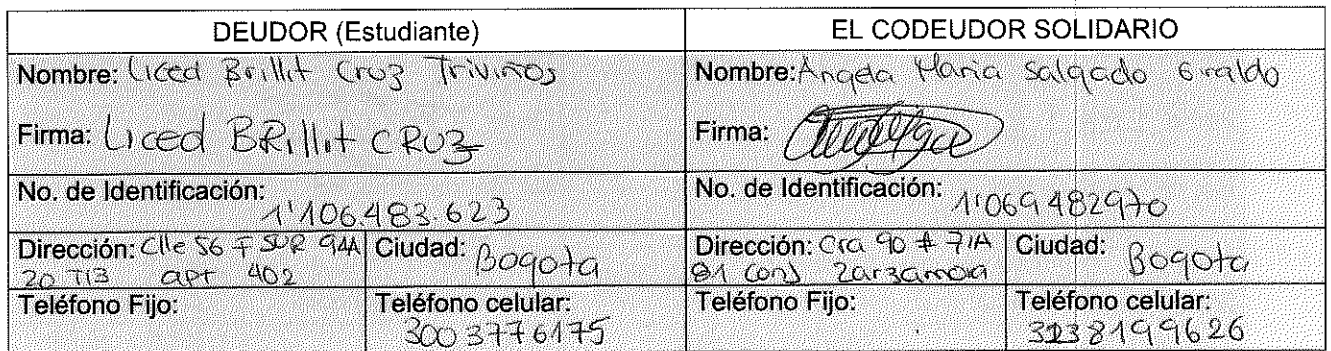 DEUDOR (Estudiante)
EL CODEUDOR SOLIDARIO
Nombre: Liced Brillit Cruz Triviños
Nombre: Angela Maria Salgado Giraldo
Firma: Liced BRillit CRUZ
Firma:
No. de Identificación: 1'106.483.623
No. de Identificación: 1'069482970
Dirección: Clle 56 F SUR 94A
20 T13 apt 402
Ciudad: Bogota
Dirección: Cra 90 # 71A
81 Conj Zarzamora
Ciudad: Bogota
Teléfono Fijo:
Teléfono celular:
3003776175
Teléfono Fijo:
Teléfono celular:
3138199626